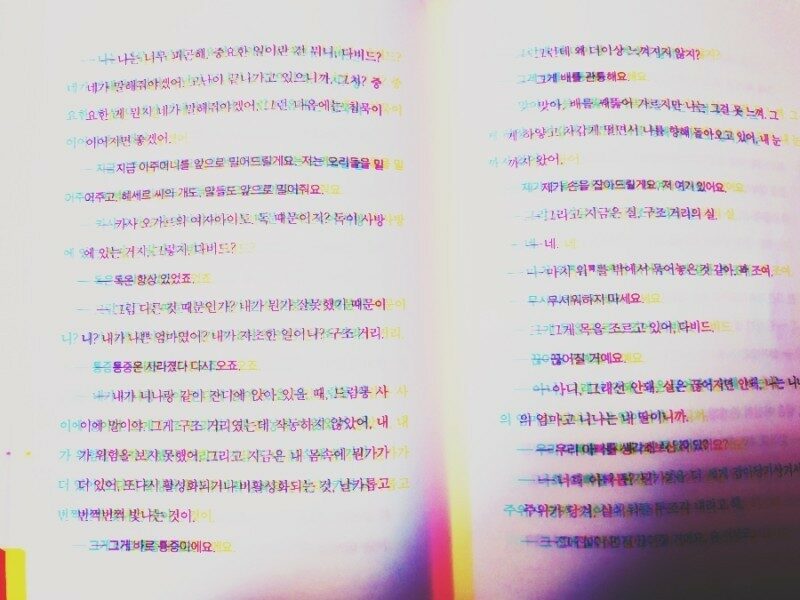 — 나는 너무 피곤해. 중요한 일이란 건 뭐니, 다비드?
네가 말해줘야겠어. 고난이 끝나가고 있으니까. 그치? 중
요한 게 뭔지 네가 말해줘야겠어. 그런 다음에는 침묵이
이어지면 좋겠어.
— 지금 아주머니를 앞으로 밀어드릴게요. 저는 오리들을 밀
어주고, 헤세르 씨의 개도, 말들도 앞으로 밀어줘요.
— 카사 오가르의 여자아이도. 독 때문이지? 독이 사방
에 있는 거지, 그렇지, 다비드?
— 독은 항상 있었죠.
— 그럼 다른 것 때문인가? 내가 뭔가 잘못했기 때문이
니? 내가 나쁜 엄마였어? 내가 자초한 일이니? 구조 거리.
— 통증은 사라졌다 다시 오죠.
— 내가 니나랑 같이 잔디에 앉아 있을 때, 드럼통 사
이에 말이야. 그게 구조 거리였는데 작동하지 않았어, 내
가 위험을 보지 못했어. 그리고 지금은 내 몸속에 뭔가가
더 있어, 또다시 활성화되거나 비활성화되는 것, 날카롭고
번쩍번쩍 빛나는 것이.
— 그게 바로 통증이에요.
— 그런데 왜 더 이상 느껴지지 않지?
— 그게 배를 관통해요.
— 맞아, 배를 꿰뚫어 가르지만 나는 그걸 못 느껴, 그
게 하얗고 차갑게 떨면서 나를 향해 돌아오고 있어, 내 눈
까지 왔어.
— 제가 손을 잡아드릴게요, 저 여기 있어요.
— 그리고 지금은 실, 구조 거리의 실.
— 네.
— 마치 위를 밖에서 묶어놓은 것 같아. 꽉 조여.
— 무서워하지 마세요.
— 그게 목을 조르고 있어, 다비드.
— 끊어질 거예요.
— 아니, 그래선 안돼. 실은 끊어지면 안돼, 나는 니나
의 엄마고 니나는 내 딸이니까.
— 우리 아빠를 생각해보신 적 있어?
— 너희 아빠를?